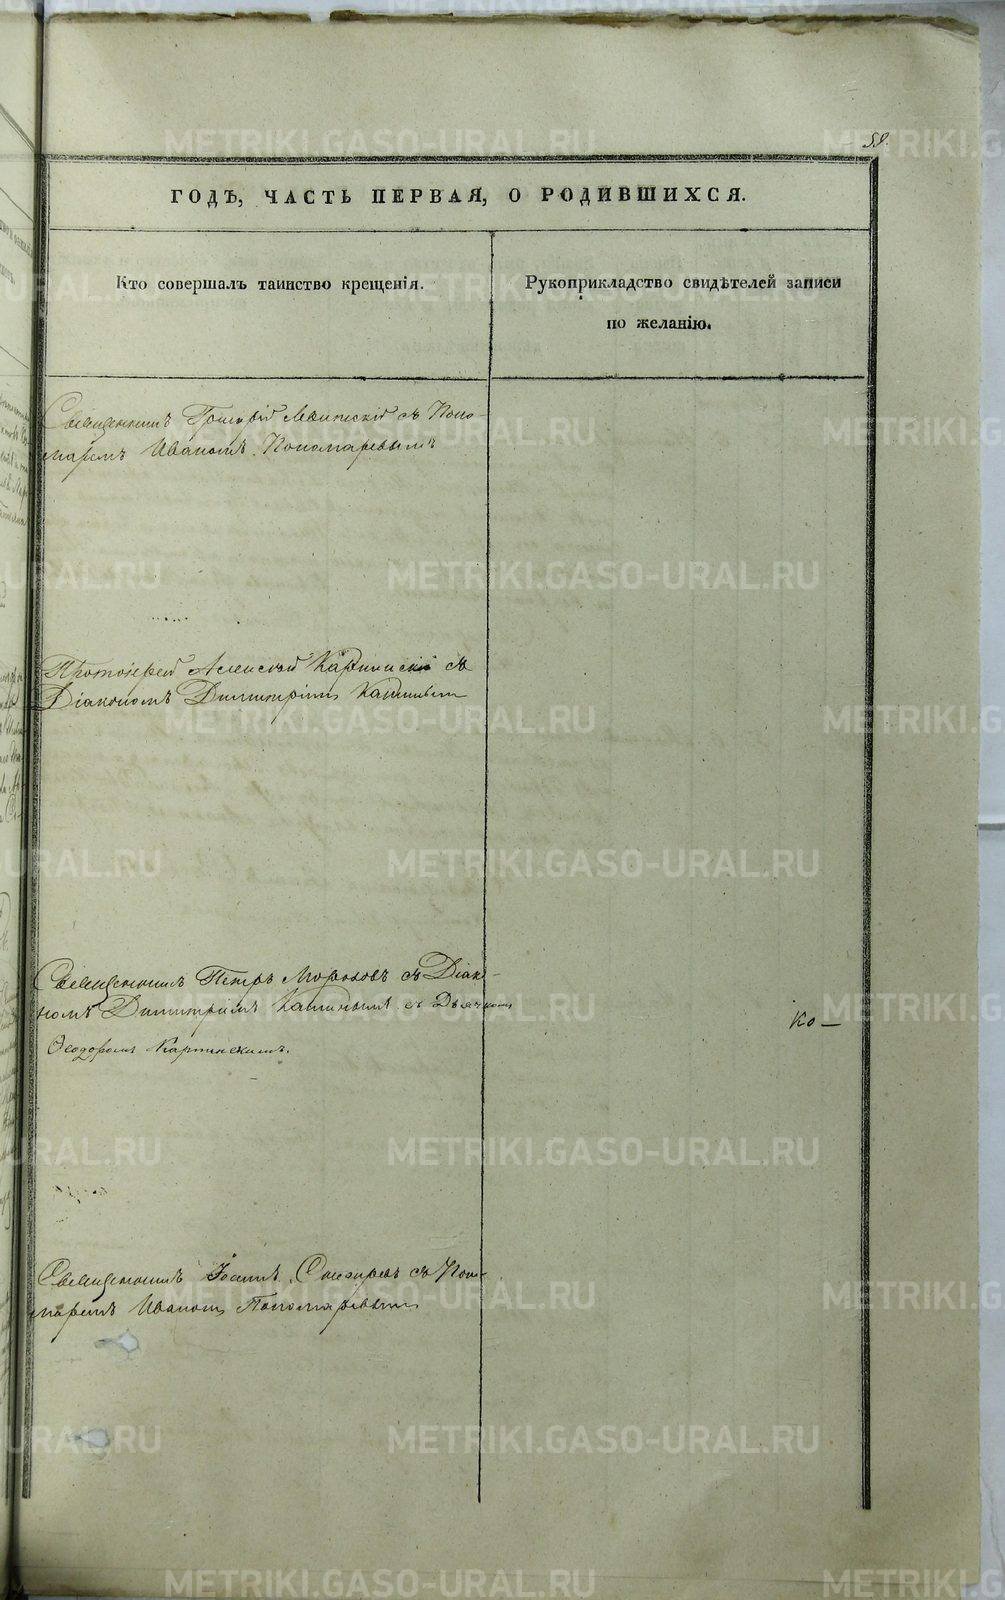 59.
ГОДЪ, ЧАСТЬ ПЕРВАЯ, О РОДИВШИХСЯ.
Кто совершалъ таинство крещенія.
Рукоприкладство свидѣтелей записи
по желанію.
Священникъ Григорій съ Поно-
маремъ Иваномъ Пономаревымъ
Протоіерей Алексѣй Карпинскій съ
Діакономъ Димитріемъ Кашинымъ
Священникъ Петръ Морозовъ съ Діако-
номъ Димитріемъ Кашинымъ съ Дьячкомъ
Ѳеодоромъ Карпинскимъ.
Ко—
Священникъ Іоаннъ съ Поно-
маремъ Иваномъ Пономаревымъ
METRIKI.GASO-URAL.RU